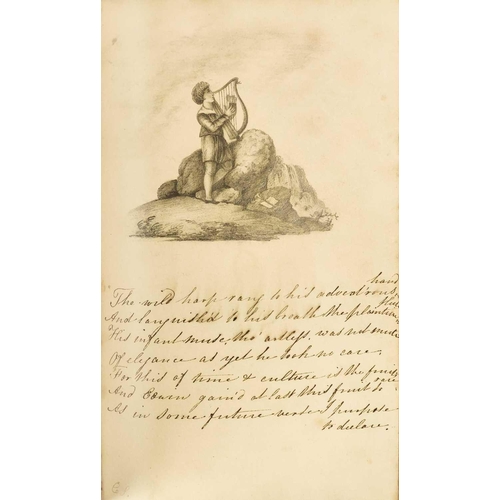 The wild harp rang to his advent'rous hand
And languished to his breath the plaintive flute
His infant muse, tho' artless, was not mute
Of elegance as yet he took no care,
For this of time & culture is the fruit,
And Edwin gain'd at last this fruit so rare
As in some future verse I purpose
to declare.